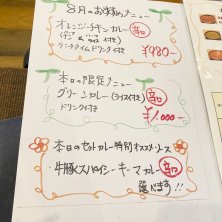 8月のおすすめメニュー
オレンジチキンカレー 辛口
ライス付き
ランチタイムドリンク付き ¥980-
本日の限定メニュー
グリーンカレー(ライス付き) 辛口
ドリンク付き ¥1,000-
本日のセットカレー特別オススメソース
牛豚スパイシーキーマカレー 辛口
選べます!!